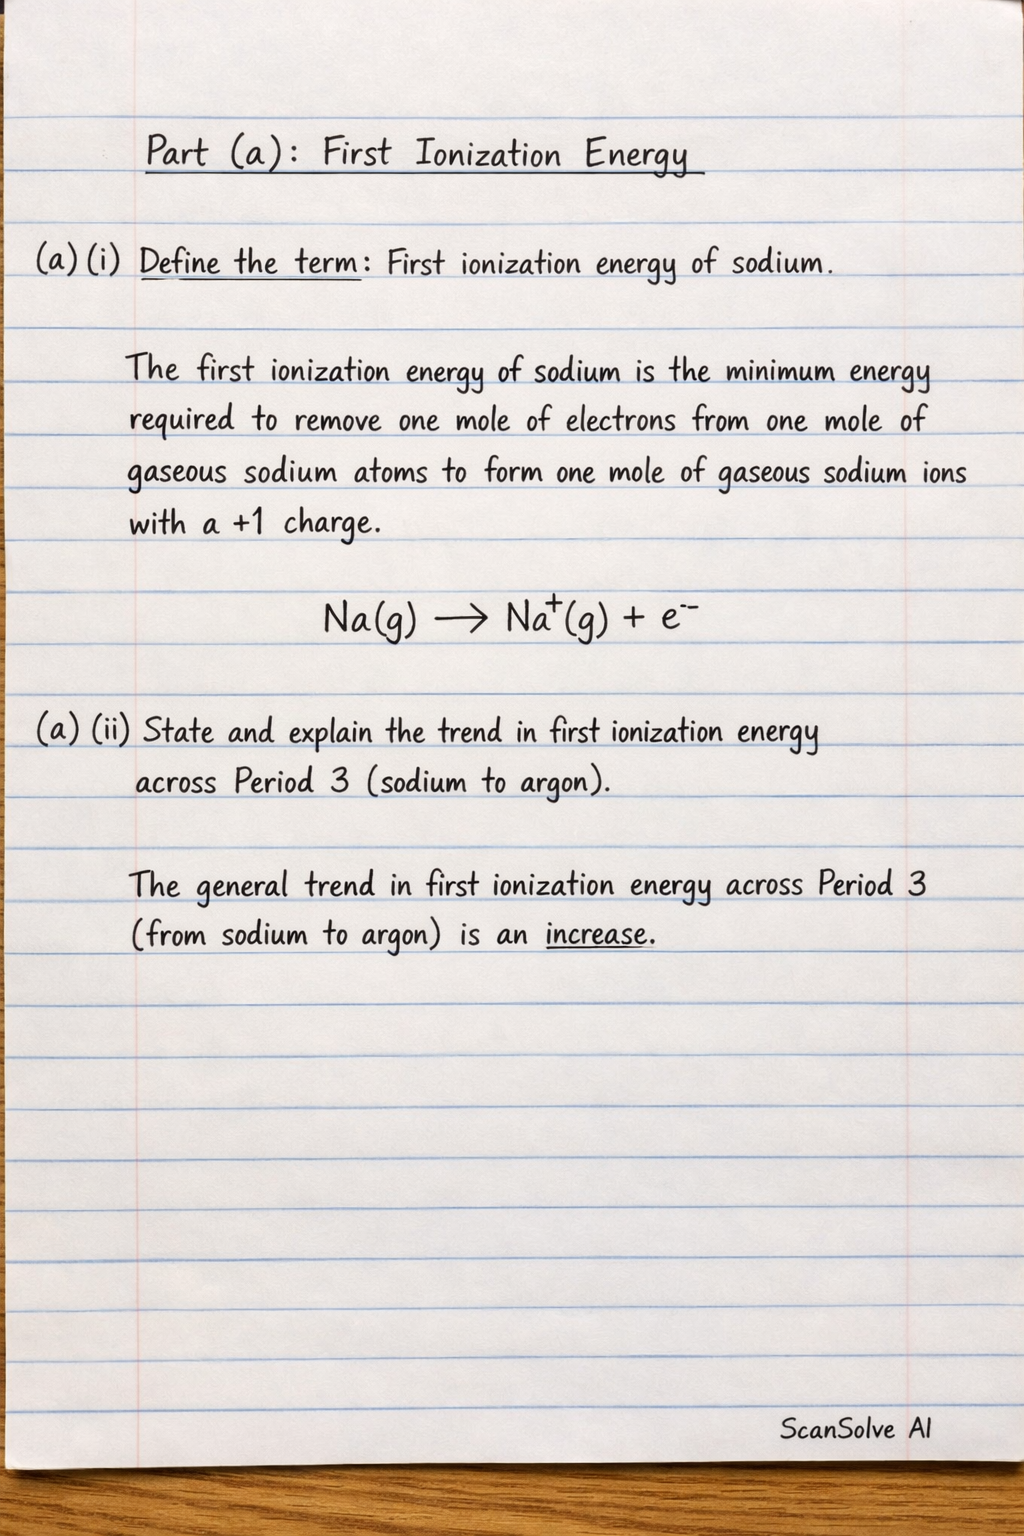 Part (a): First Ionization Energy
(a) (i) Define the term: First ionization energy of sodium.
The first ionization energy of sodium is the minimum energy
required to remove one mole of electrons from one mole of
gaseous sodium atoms to form one mole of gaseous sodium ions
with a +1 charge.
Na(g) ⟶ Na⁺(g) + e⁻
(a) (ii) State and explain the trend in first ionization energy
across Period 3 (sodium to argon).
The general trend in first ionization energy across Period 3
(from sodium to argon) is an increase.
ScanSolve AI